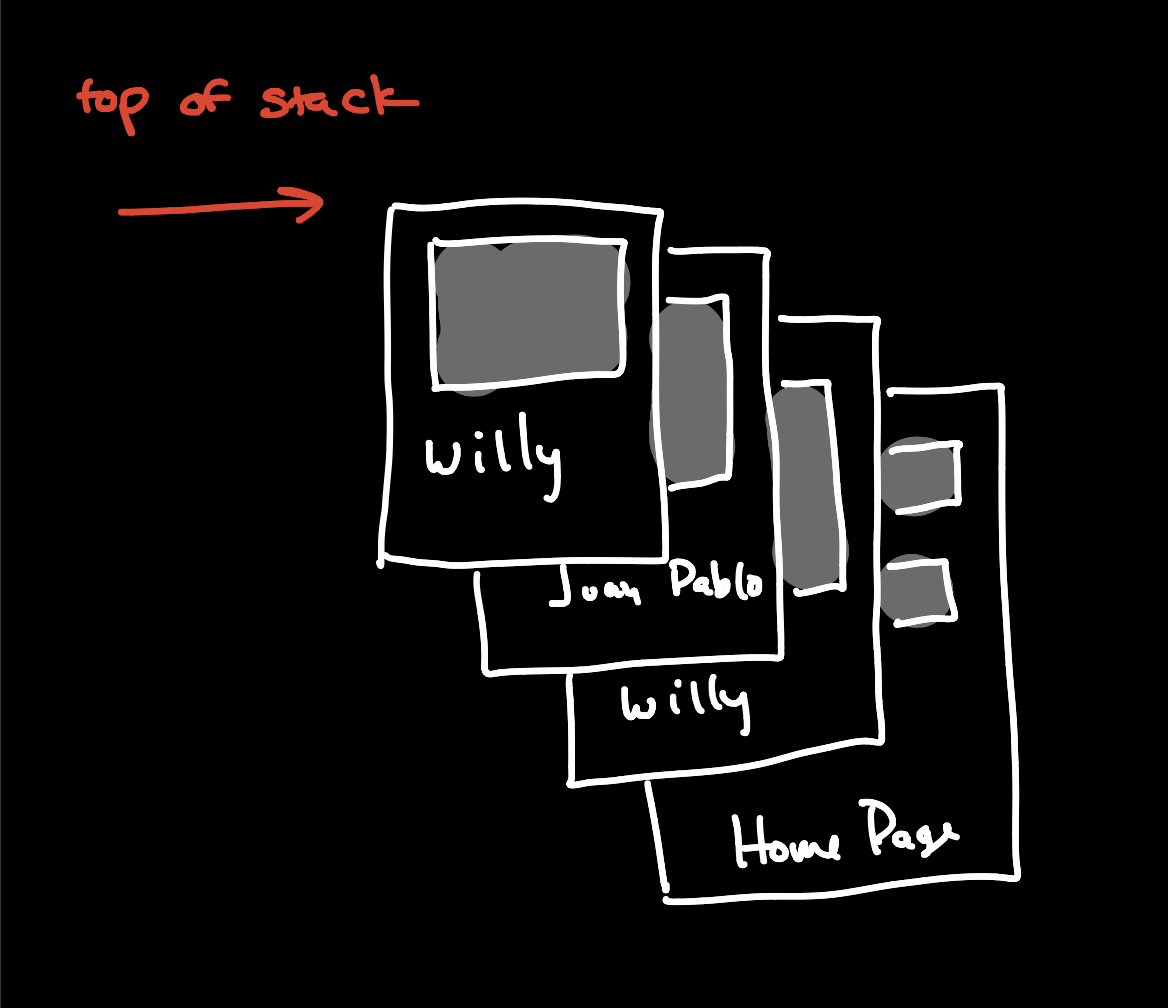 top of stack
Willy
Juan Pablo
Willy
Home Page